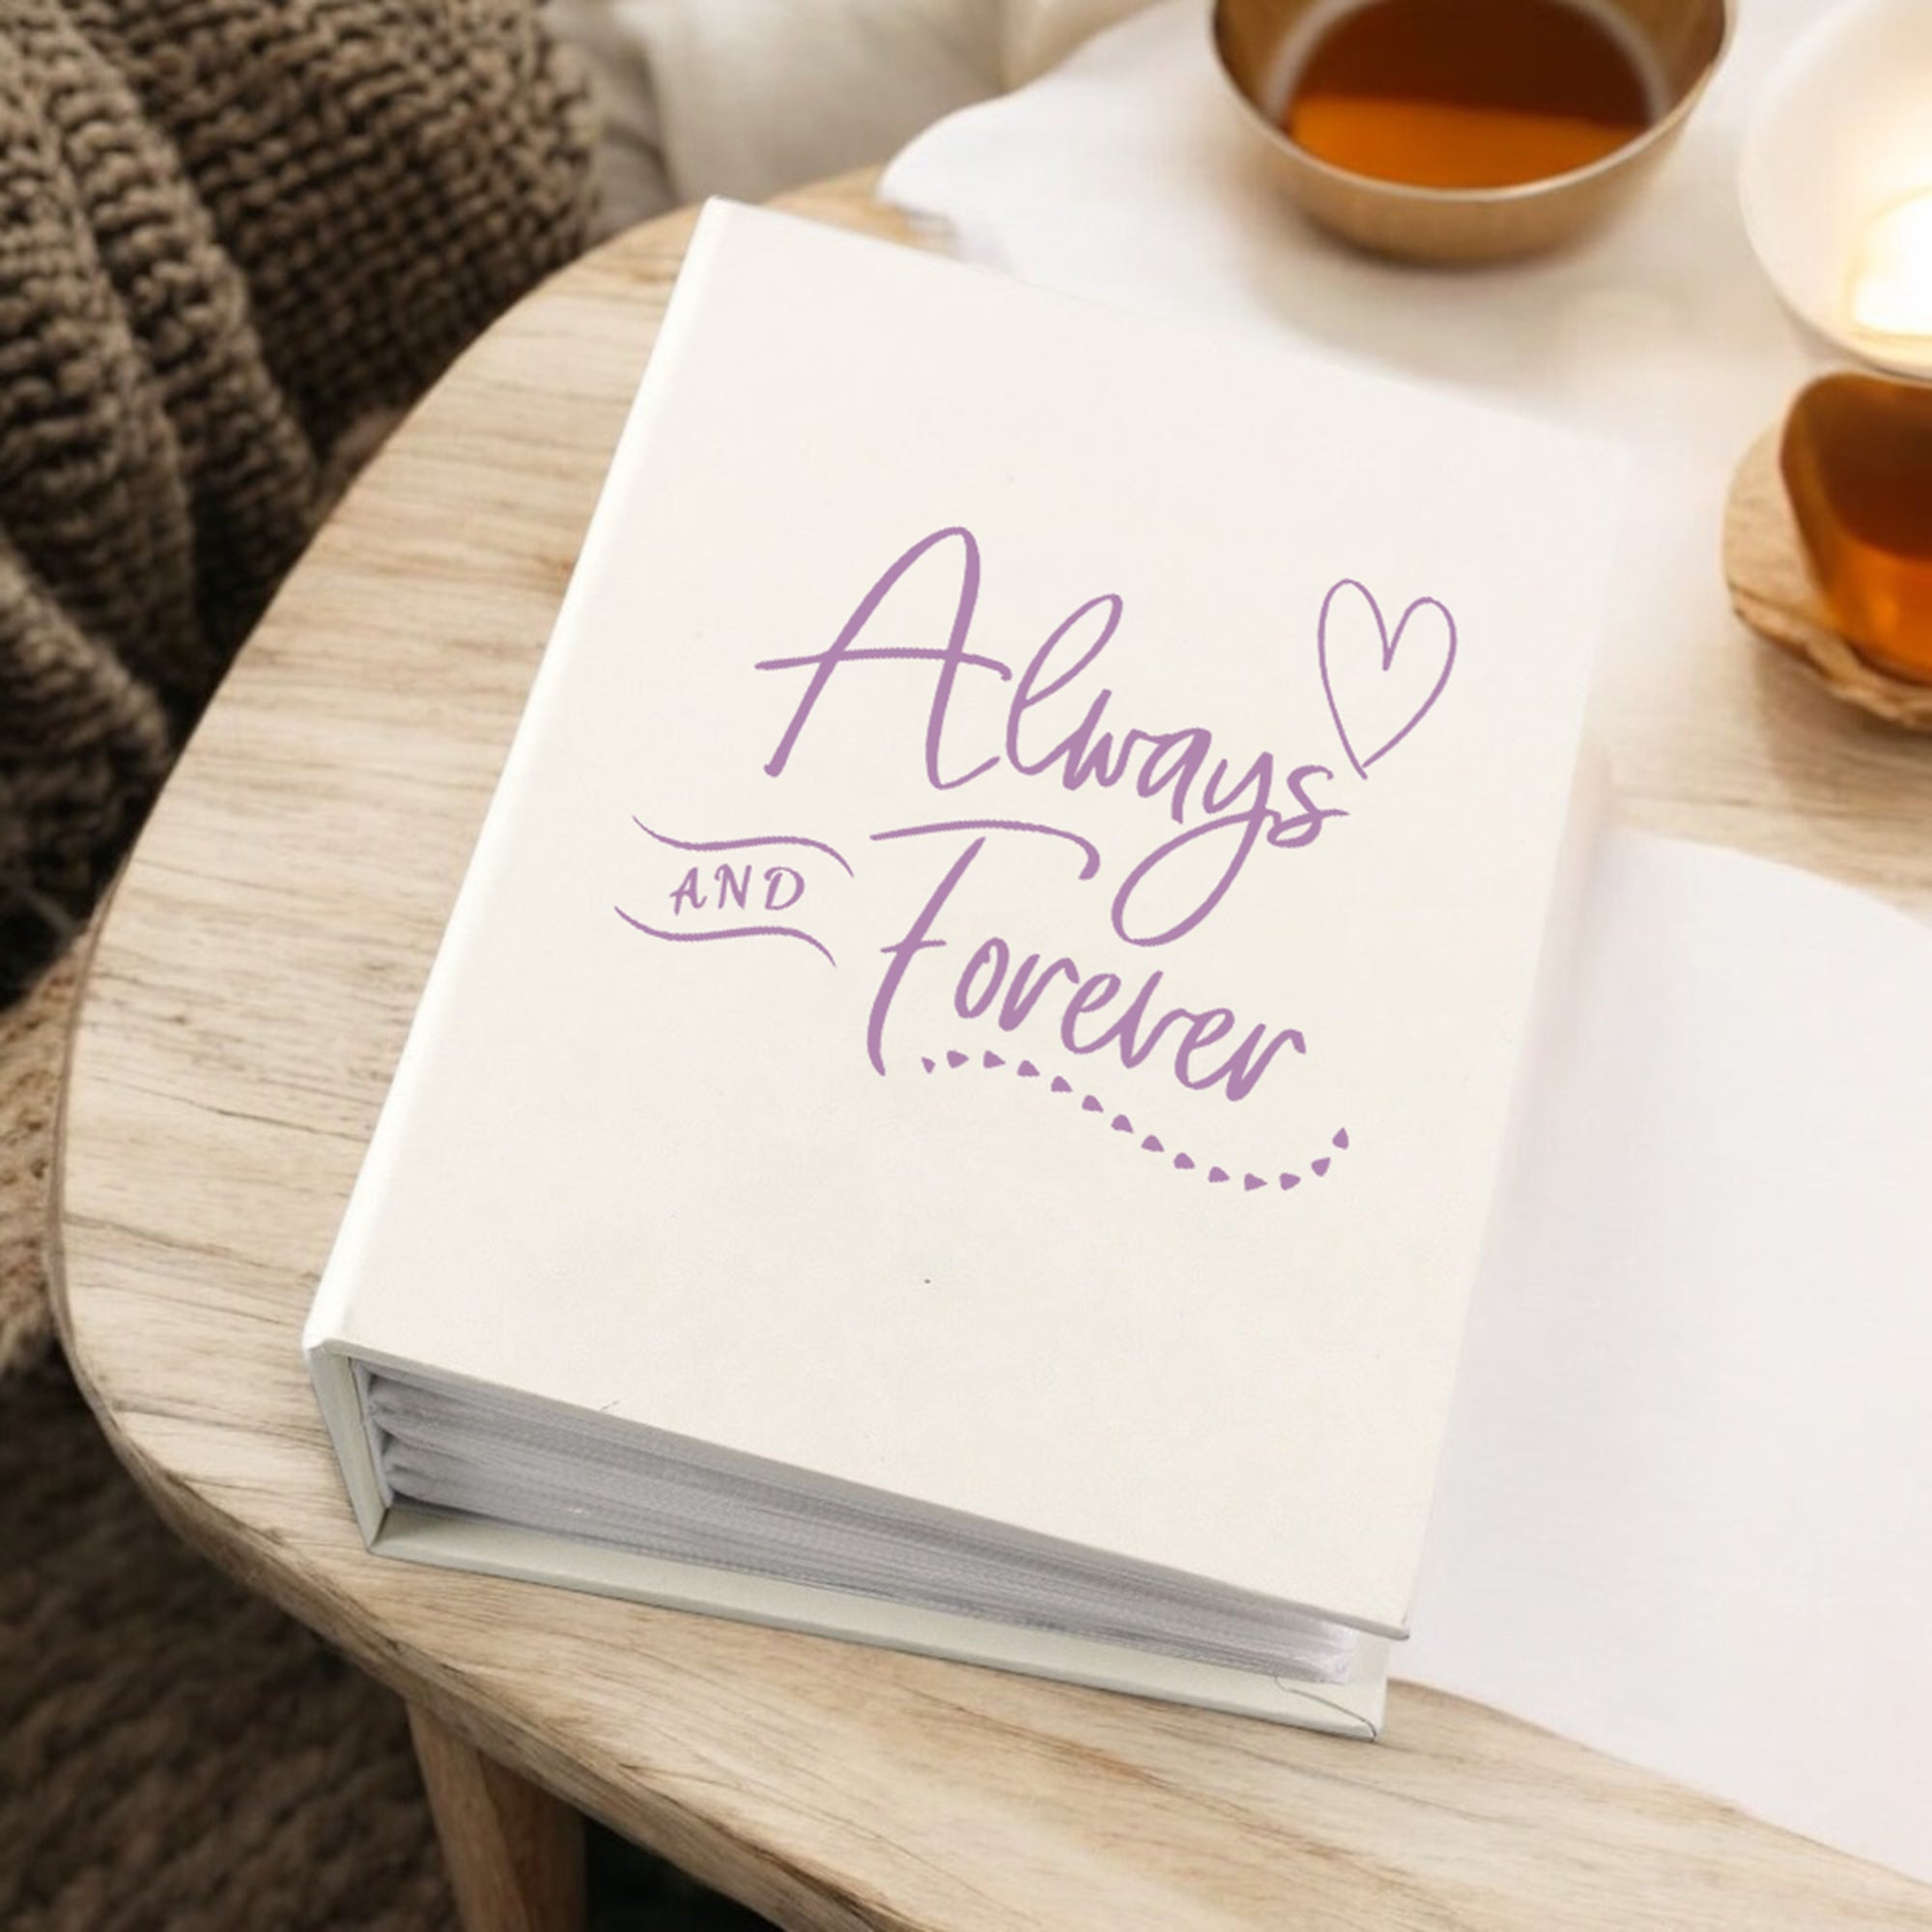 Always
AND
Forever